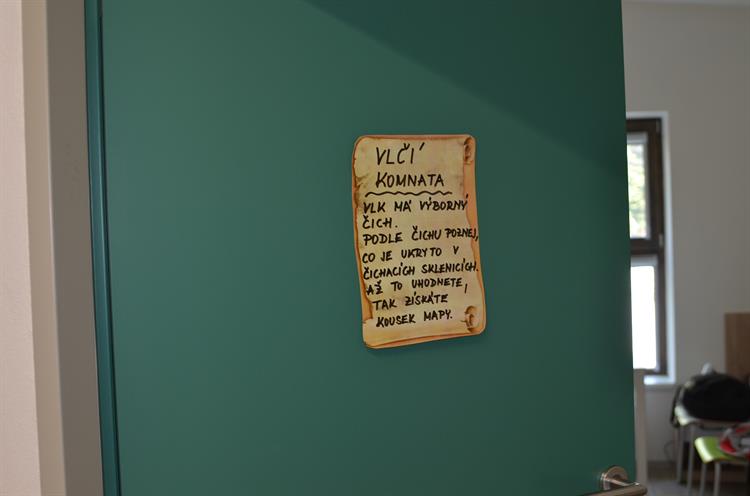 VLČÍ
KOMNATA
VLK MÁ VÝBORNÝ
ČICH.
PODLE ČICHU POZNEJ,
CO JE UKRYTO V
ČICHACÍCH SKLENICÍCH.
AŽ TO UHODNETE,
TAK ZÍSKÁTE
KOUSEK MAPY.